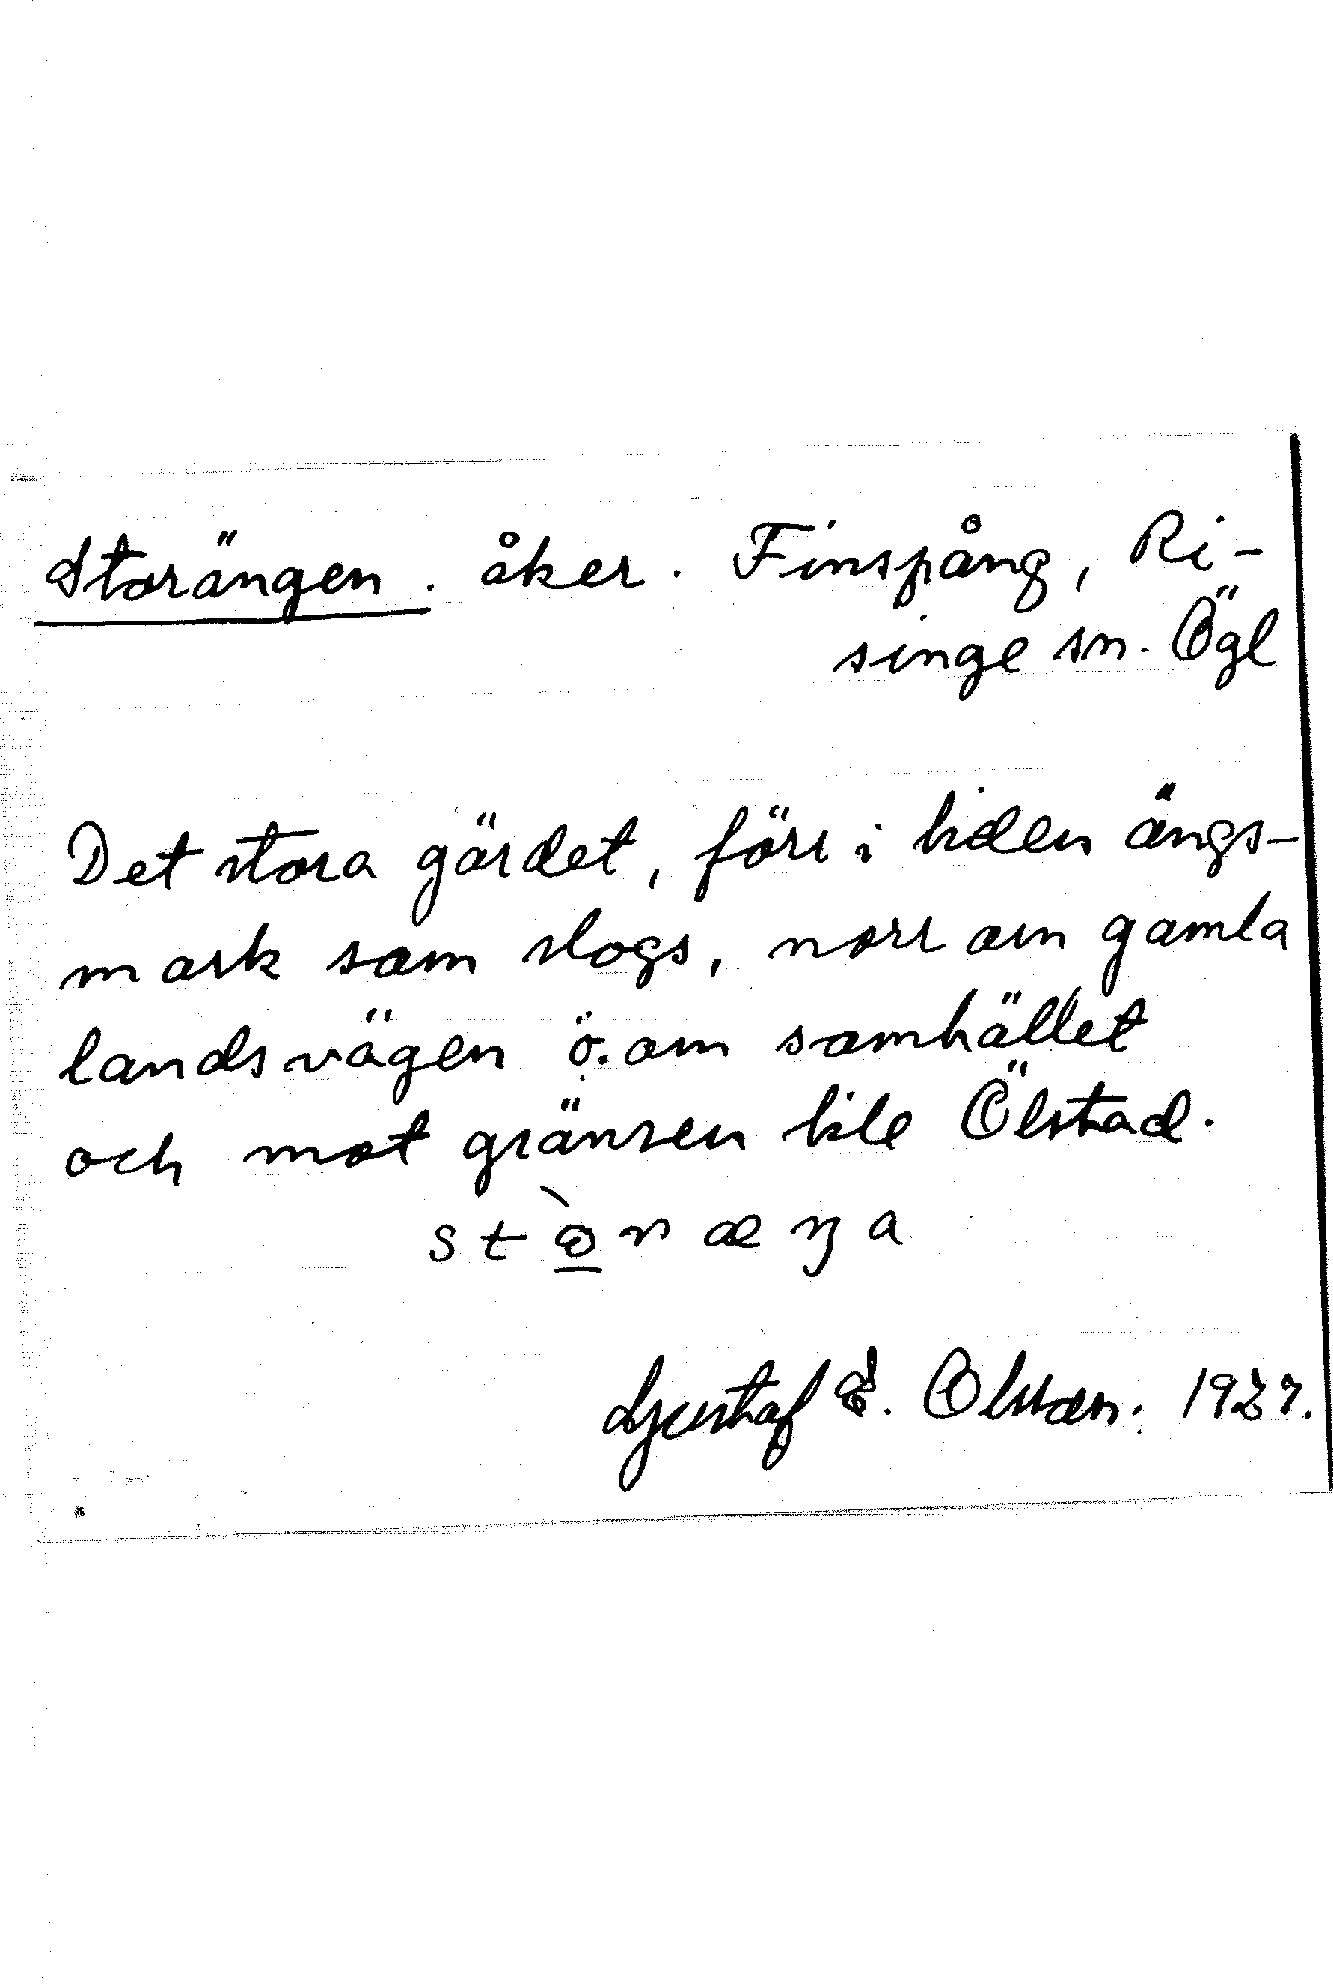 Storängen. åker. Finspång, Ri-
singe sn. Ögl
Det stora gärdet, förr i tiden ängs-
mark som slogs, norr om gamla
landsvägen ö. om samhället
och mot gränsen till Ölstad.
Gustaf E. Olsson. 1927.